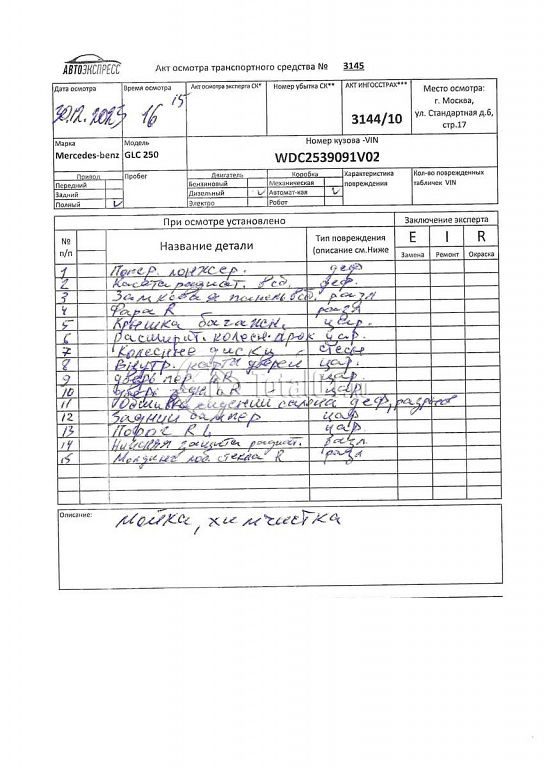 АВТОЭКСПРЕСС
Акт осмотра транспортного средства № 3145
Дата осмотра
30.12.2023
Время осмотра
16 15
Акт осмотра эксперта СК*
Номер убытка СК**
АКТ ИНГОССТРАХ***
3144/10
Место осмотра:
г. Москва,
ул. Стандартная д.6,
стр.17
Марка
Mercedes-benz
Модель
GLC 250
Номер кузова -VIN
WDC2539091V02
Привод
Передний
Задний
Полный
Пробег
Двигатель
Бензиновый
Дизельный
Электро
Коробка
Механическая
Автомат-кая
Робот
Характеристика
повреждения
Кол-во поврежденных
табличек VIN
При осмотре установлено
Заключение эксперта
№
п/п
Название детали
Тип повреждения
(описание см.Ниже
E I R
Замена Ремонт Окраска
1 Попер. лонжер. деф
2 Кассета радиат. в сб. деф.
3 Замковая панель в сб. разл
4 Фара R разл
5 Крышка багажн. цар.
6 Расширит. колесн. арок цар.
7 Колесные диски стесы
8 Внутр. карты дверей цар.
9 дверь пер. R цар
10 дверь R цар
11 Обшивка сидений салона деф,
12 Задний бампер цар
13 Порог R L цар.
14 защита радиат. разл.
15 Молдинг лоб. стекла R разл
Описание:
мойка, химчистка